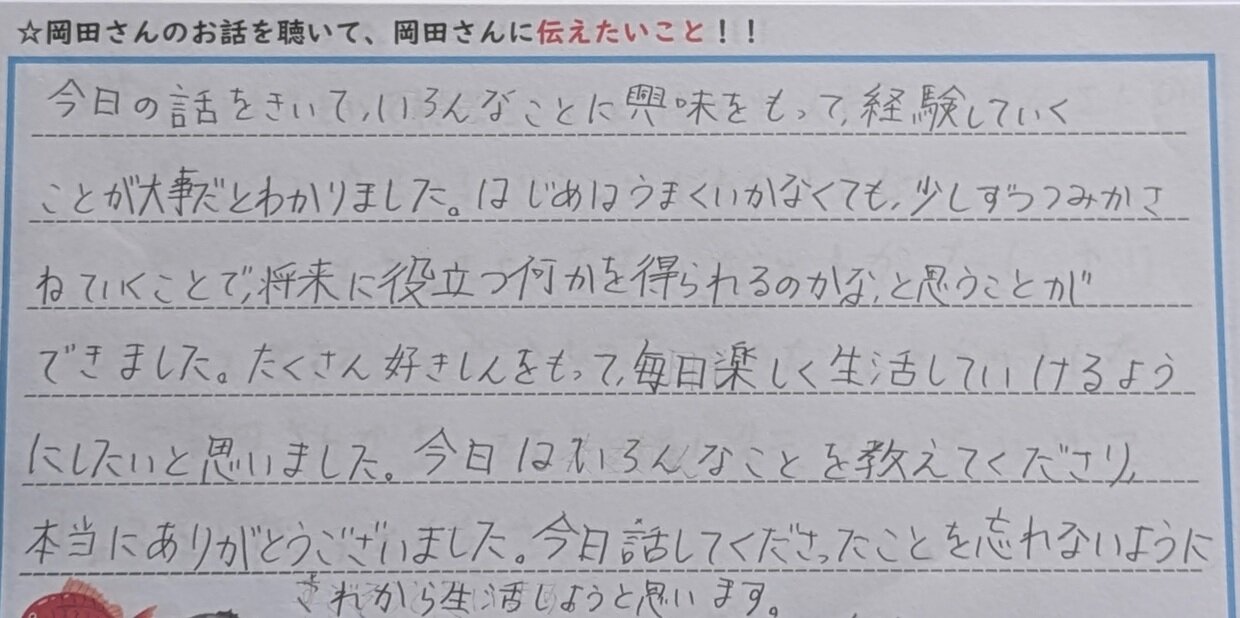 ☆岡田さんのお話を聴いて、岡田さんに伝えたいこと！！
今日の話をきいて、いろんなことに興味をもって、経験していく
ことが大事だとわかりました。はじめはうまくいかなくても、少しずつつみかさ
ねていくことで、将来に役立つ何かを得られるのかな、と思うことが
できました。たくさん好きしんをもって、毎日楽しく生活していけるよう
にしたいと思いました。今日はいろんなことを教えてくださり、
本当にありがとうございました。今日話してくださったことを忘れないように
これから生活しようと思います。